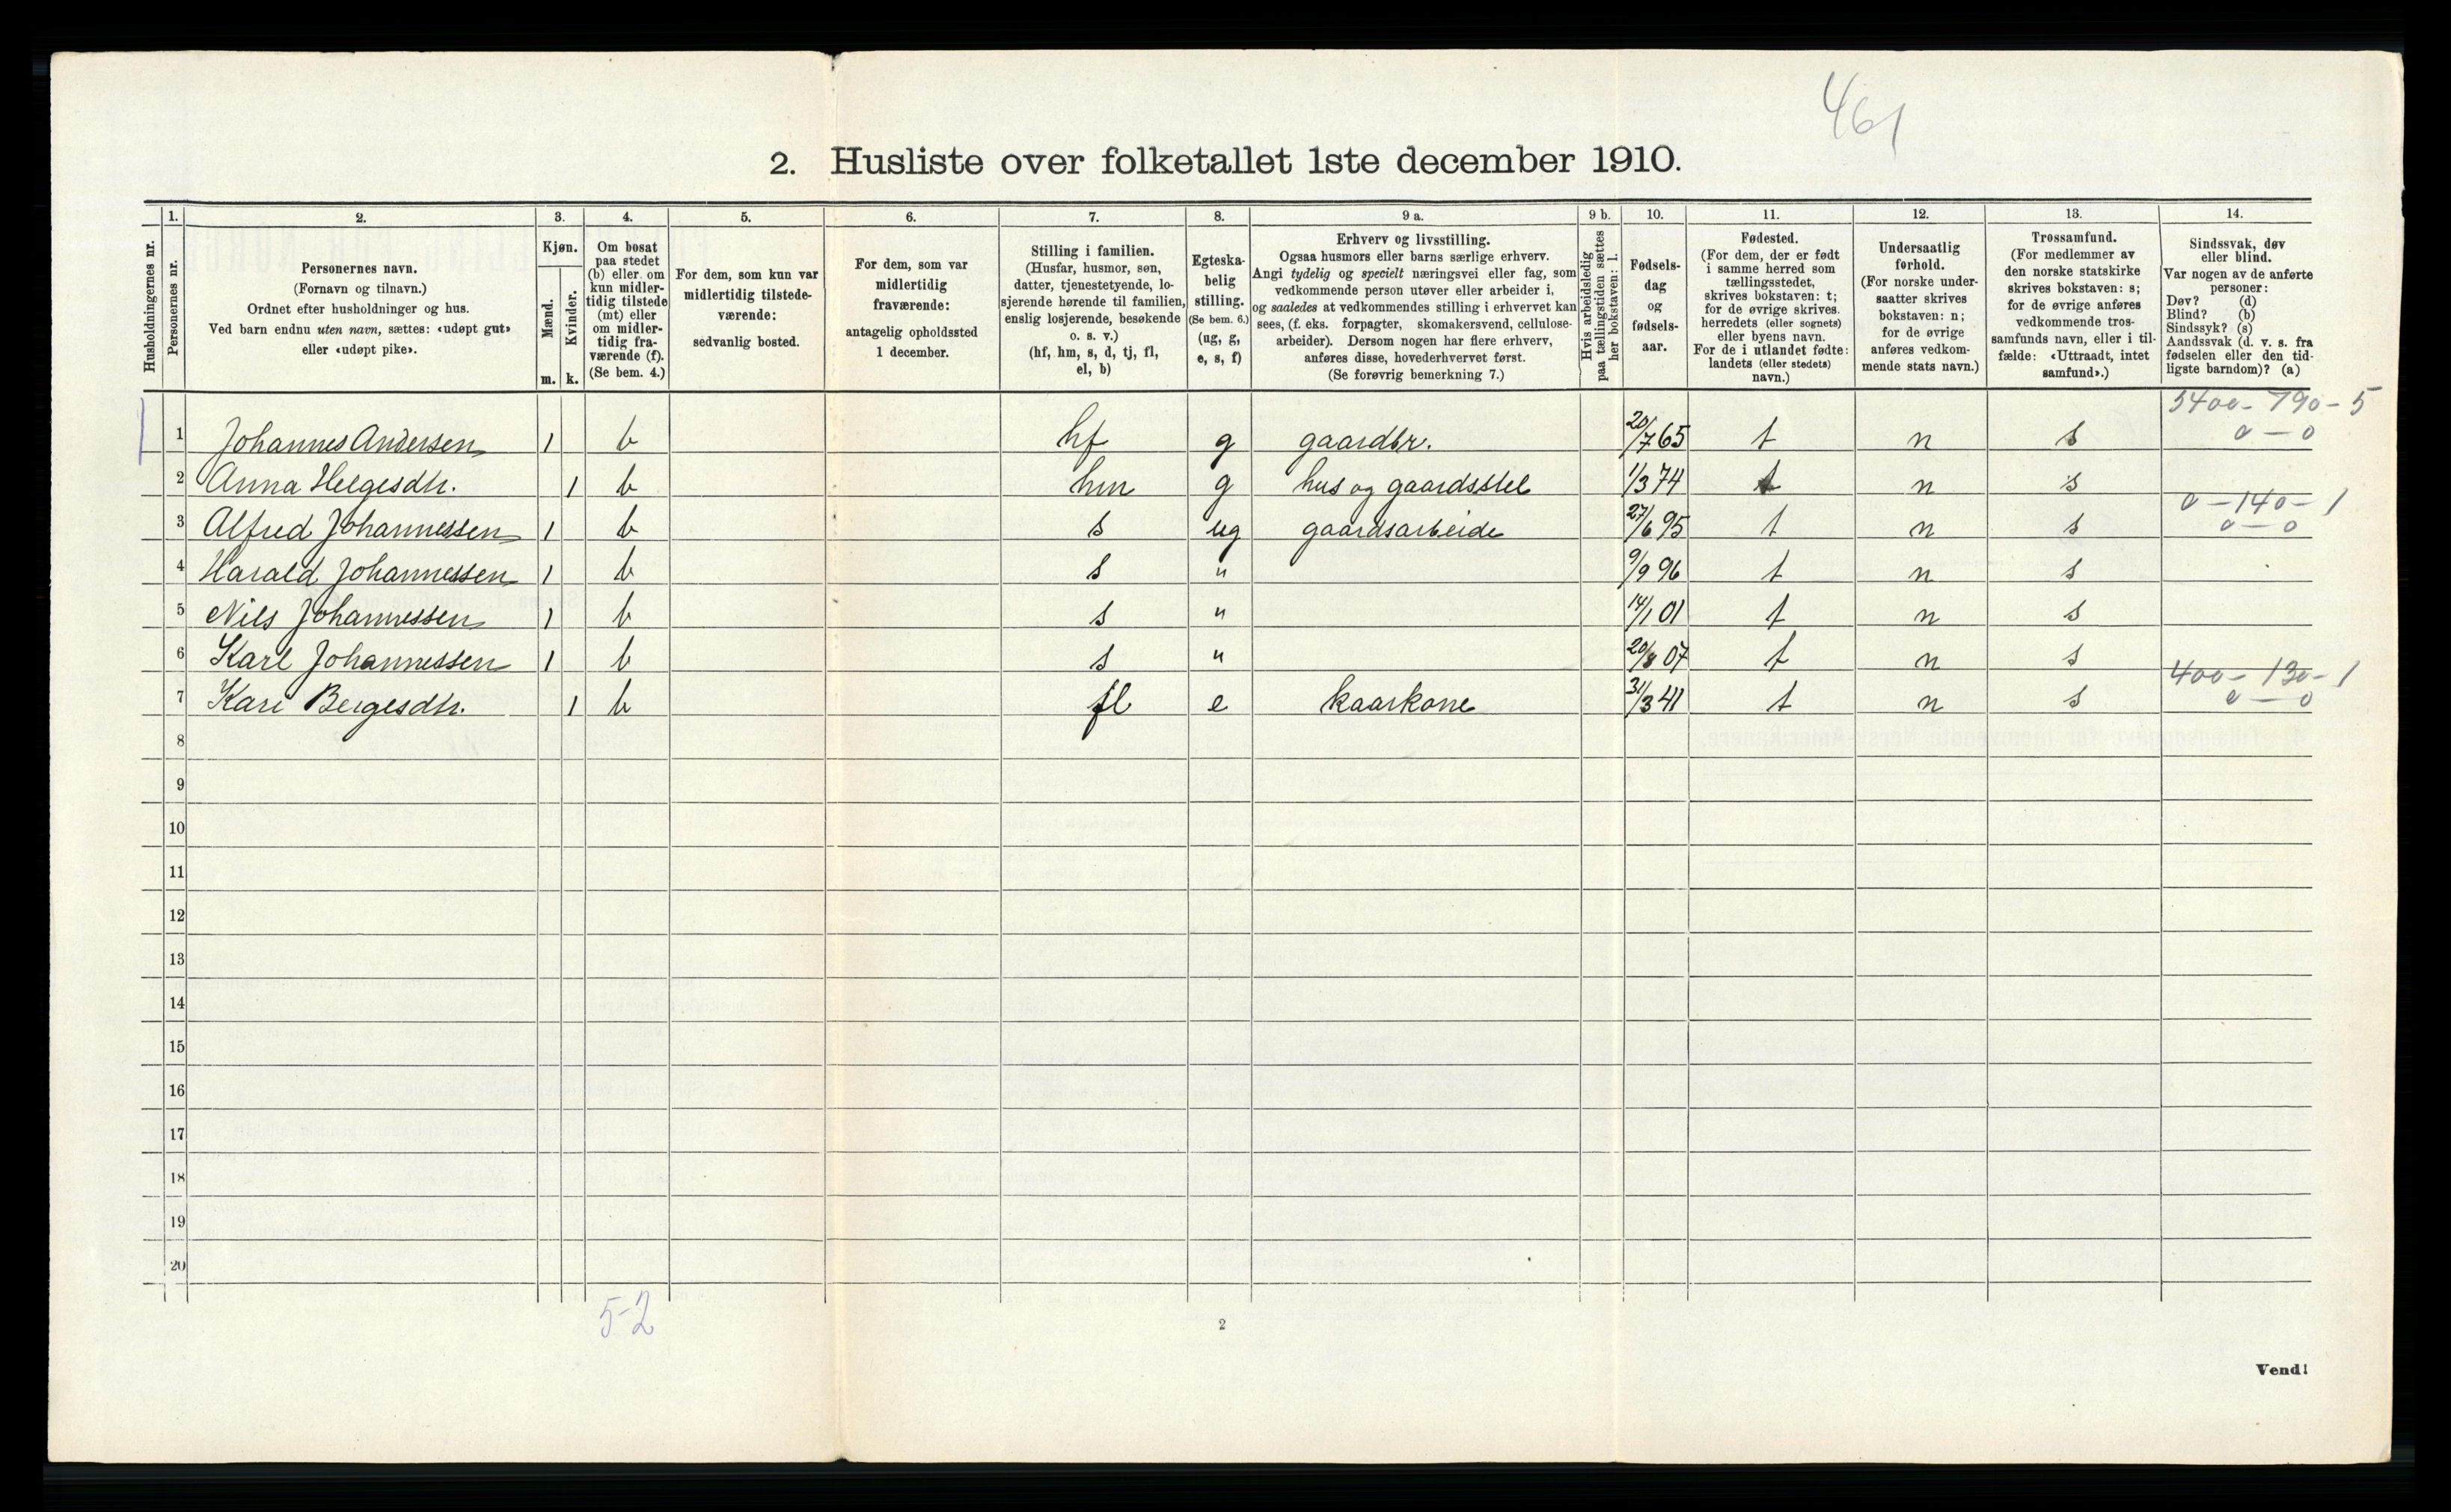 461
2. Husliste over folketallet 1ste december 1910.
Husholdningernes nr.
1. Personernes nr.
2. Personernes navn.
(Fornavn og tilnavn.)
Ordnet efter husholdninger og hus.
Ved barn endnu uten navn, sættes: «udøpt gut»
eller «udøpt pike».
3. Kjøn.
Mænd. m.
Kvinder. k.
4. Om bosat
paa stedet
(b) eller om
kun midler-
tidig tilstede
(mt) eller
om midler-
tidig fra-
værende (f).
(Se bem. 4.)
5. For dem, som kun var
midlertidig tilstede-
værende:
sedvanlig bosted.
6. For dem, som var
midlertidig
fraværende:
antagelig opholdssted
1 december.
7. Stilling i familien.
(Husfar, husmor, søn,
datter, tjenestetyende, lo-
sjerende hørende til familien,
enslig losjerende, besøkende
o. s. v.)
(hf, hm, s, d, tj, fl,
el, b)
8. Egteska-
belig
stilling.
(Se bem. 6.)
(ug, g,
e, s, f)
9 a. Erhverv og livsstilling.
Ogsaa husmors eller barns særlige erhverv.
Angi tydelig og specielt næringsvei eller fag, som
vedkommende person utøver eller arbeider i,
og saaledes at vedkommendes stilling i erhvervet kan
sees, (f. eks. forpagter, skomakersvend, cellulose-
arbeider). Dersom nogen har flere erhverv,
anføres disse, hovederhvervet først.
(Se forøvrig bemerkning 7.)
9 b. Hvis arbeidsledig
paa tællingstiden sættes
her bokstaven: l.
10. Fødsels-
dag
og
fødsels-
aar.
11. Fødested.
(For dem, der er født
i samme herred som
tællingsstedet,
skrives bokstaven: t;
for de øvrige skrives
herredets (eller sognets)
eller byens navn.
For de i utlandet fødte:
landets (eller stedets)
navn.)
12. Undersaatlig
forhold.
(For norske under-
saatter skrives
bokstaven: n;
for de øvrige
anføres vedkom-
mende stats navn.)
13. Trossamfund.
(For medlemmer av
den norske statskirke
skrives bokstaven: s;
for de øvrige anføres
vedkommende tros-
samfunds navn, eller i til-
fælde: «Uttraadt, intet
samfund».)
14. Sindssvak, døv
eller blind.
Var nogen av de anførte
personer:
Døv? (d)
Blind? (b)
Sindssyk? (s)
Aandssvak (d. v. s. fra
fødselen eller den tid-
ligste barndom)? (a)
5400 - 790 - 5
1 Johannes Andersen 1 b hf g gaardbr. 20/7 65 t n s 0 - 0
2 Anna Helgesdtr. 1 b hm g hus og gaardsstel 1/3 74 t n s
0 - 140 - 1
3 Alfred Johannessen 1 b s ug gaardsarbeide 27/6 95 t n s 0 - 0
4 Harald Johannessen 1 b s " 9/9 96 t n s
5 Nils Johannessen 1 b s " 14/1 01 t n s
6 Karl Johannessen 1 b s " 20/8 07 t n s
400 - 130 - 1
7 Kari Bergesdtr. 1 b fl e kaarkone 31/3 41 t n s 0 - 0
8
9
10
11
12
13
14
15
16
17
18
19
20
5-2
2
Vend!